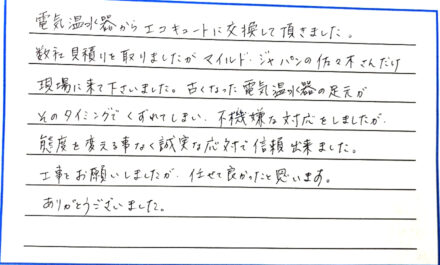 電気温水器からエコキュートに交換して頂きました。
数社見積りを取りましたがマイルド・ジャパンの佐々木さんだけ
現場に来て下さいました。古くなった電気温水器の足元が
そのタイミングでくずれてしまい、不機嫌な対応をしましたが、
態度を変える事なく誠実な応対で信頼出来ました。
工事をお願いしましたが、任せて良かったと思います。
ありがとうございました。